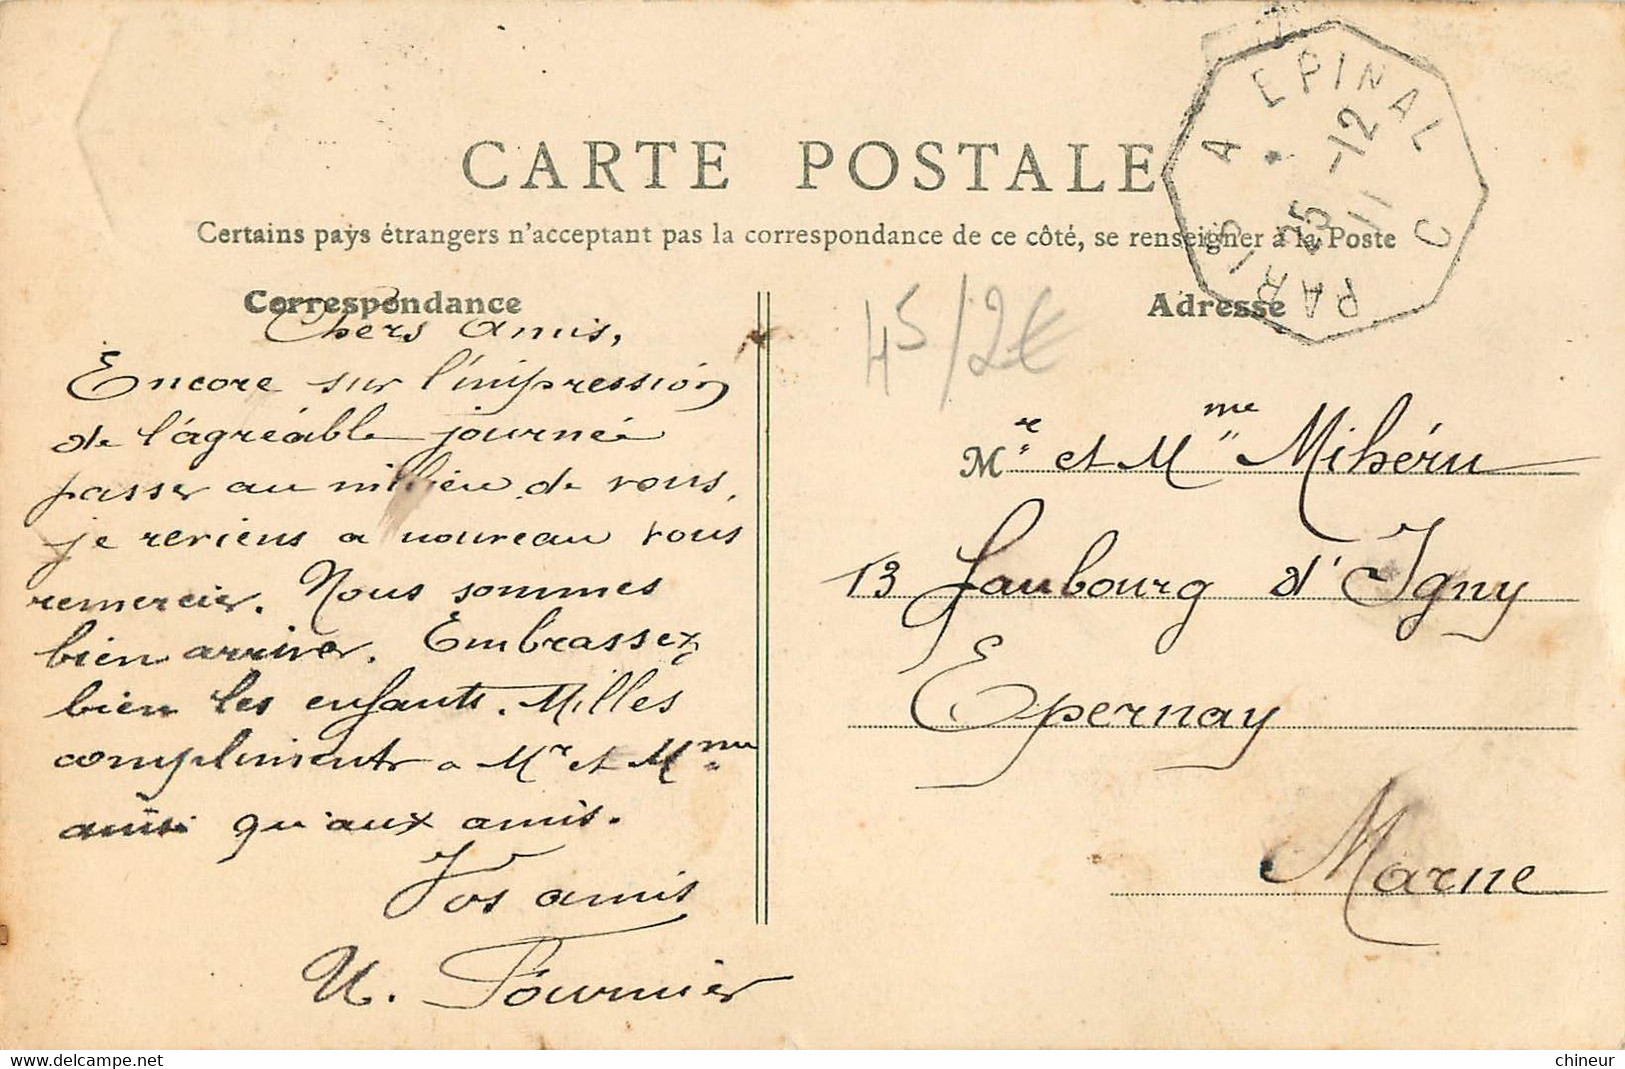 CARTE POSTALE
Certains pays étrangers n'acceptant pas la correspondance de ce côté, se renseigner à la Poste
Correspondance
Chers Amis,
Encore sur l'impression
de l'agréable journée
passer au milieu de vous,
je reviens a nouveau vous
remercier. Nous sommes
bien arriver. Embrassez
bien les enfants. Milles
compliments a Mr et Mme
ainsi qu'aux amis.
Vos amis
U. Fournier
Adresse
45/2€
Mr et Mme Mihéru
13 Faubourg d'Igny
Epernay
Marne
PARIS A EPINAL C
25 -12
11
chineur